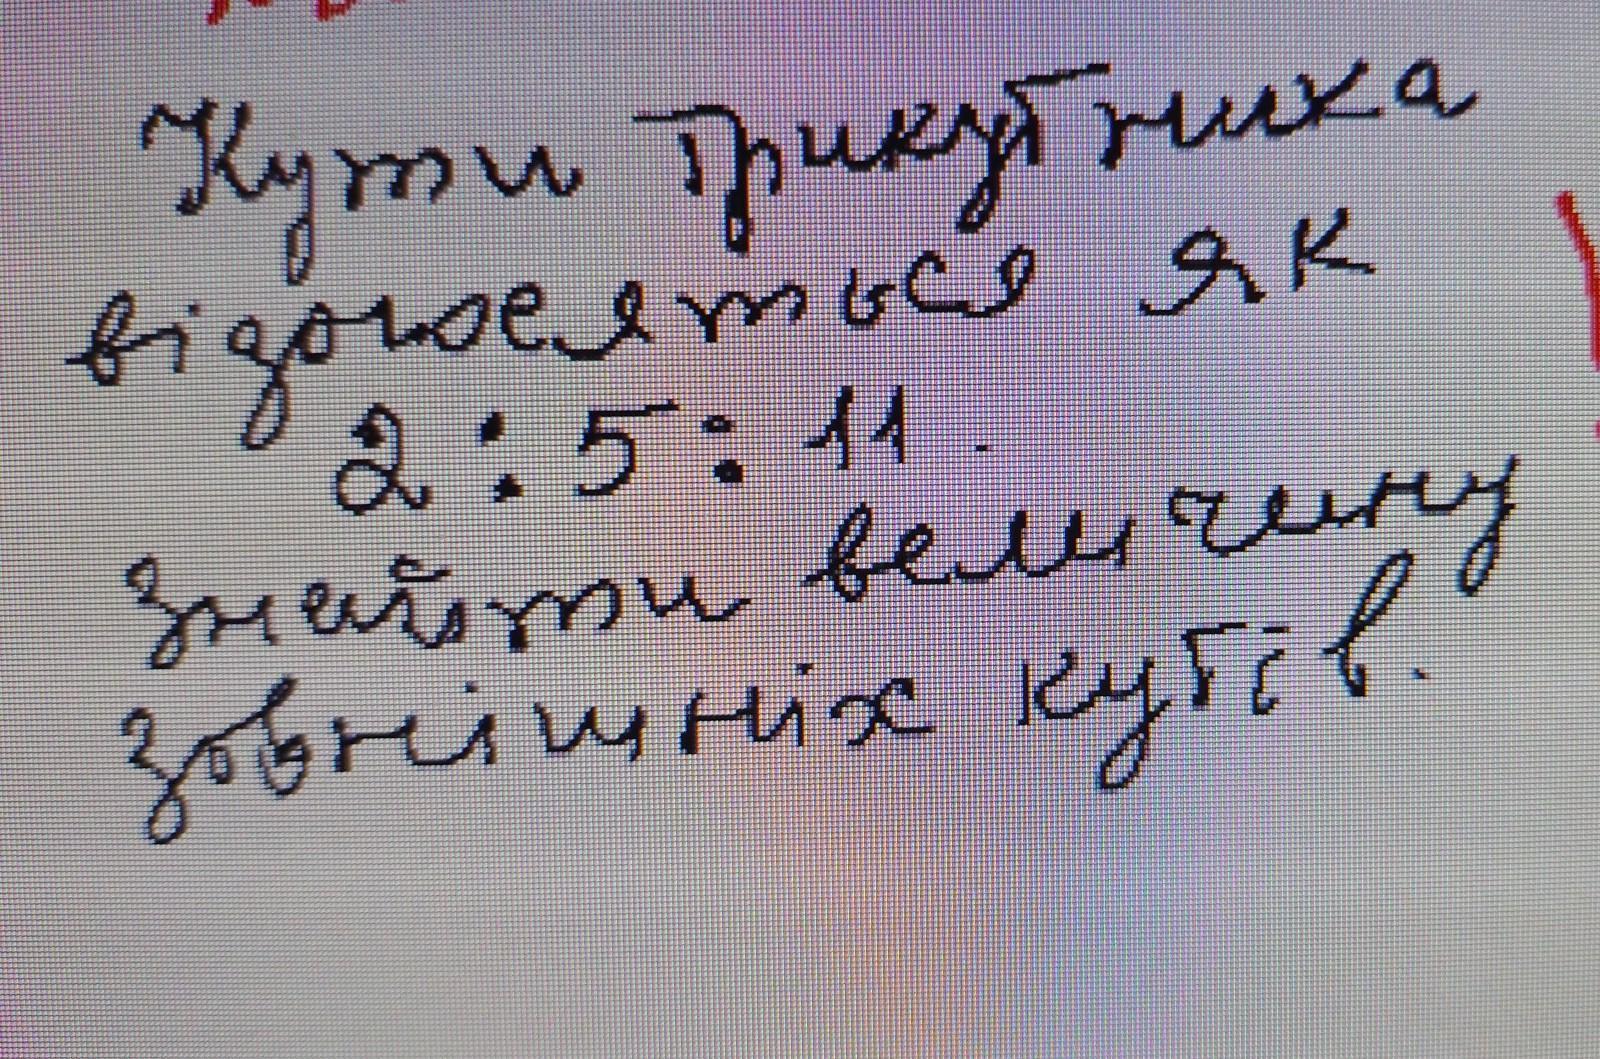 Кути трикутника
відносяться як
2 : 5 : 11.
Знайти величину
зовнішніх кутів.